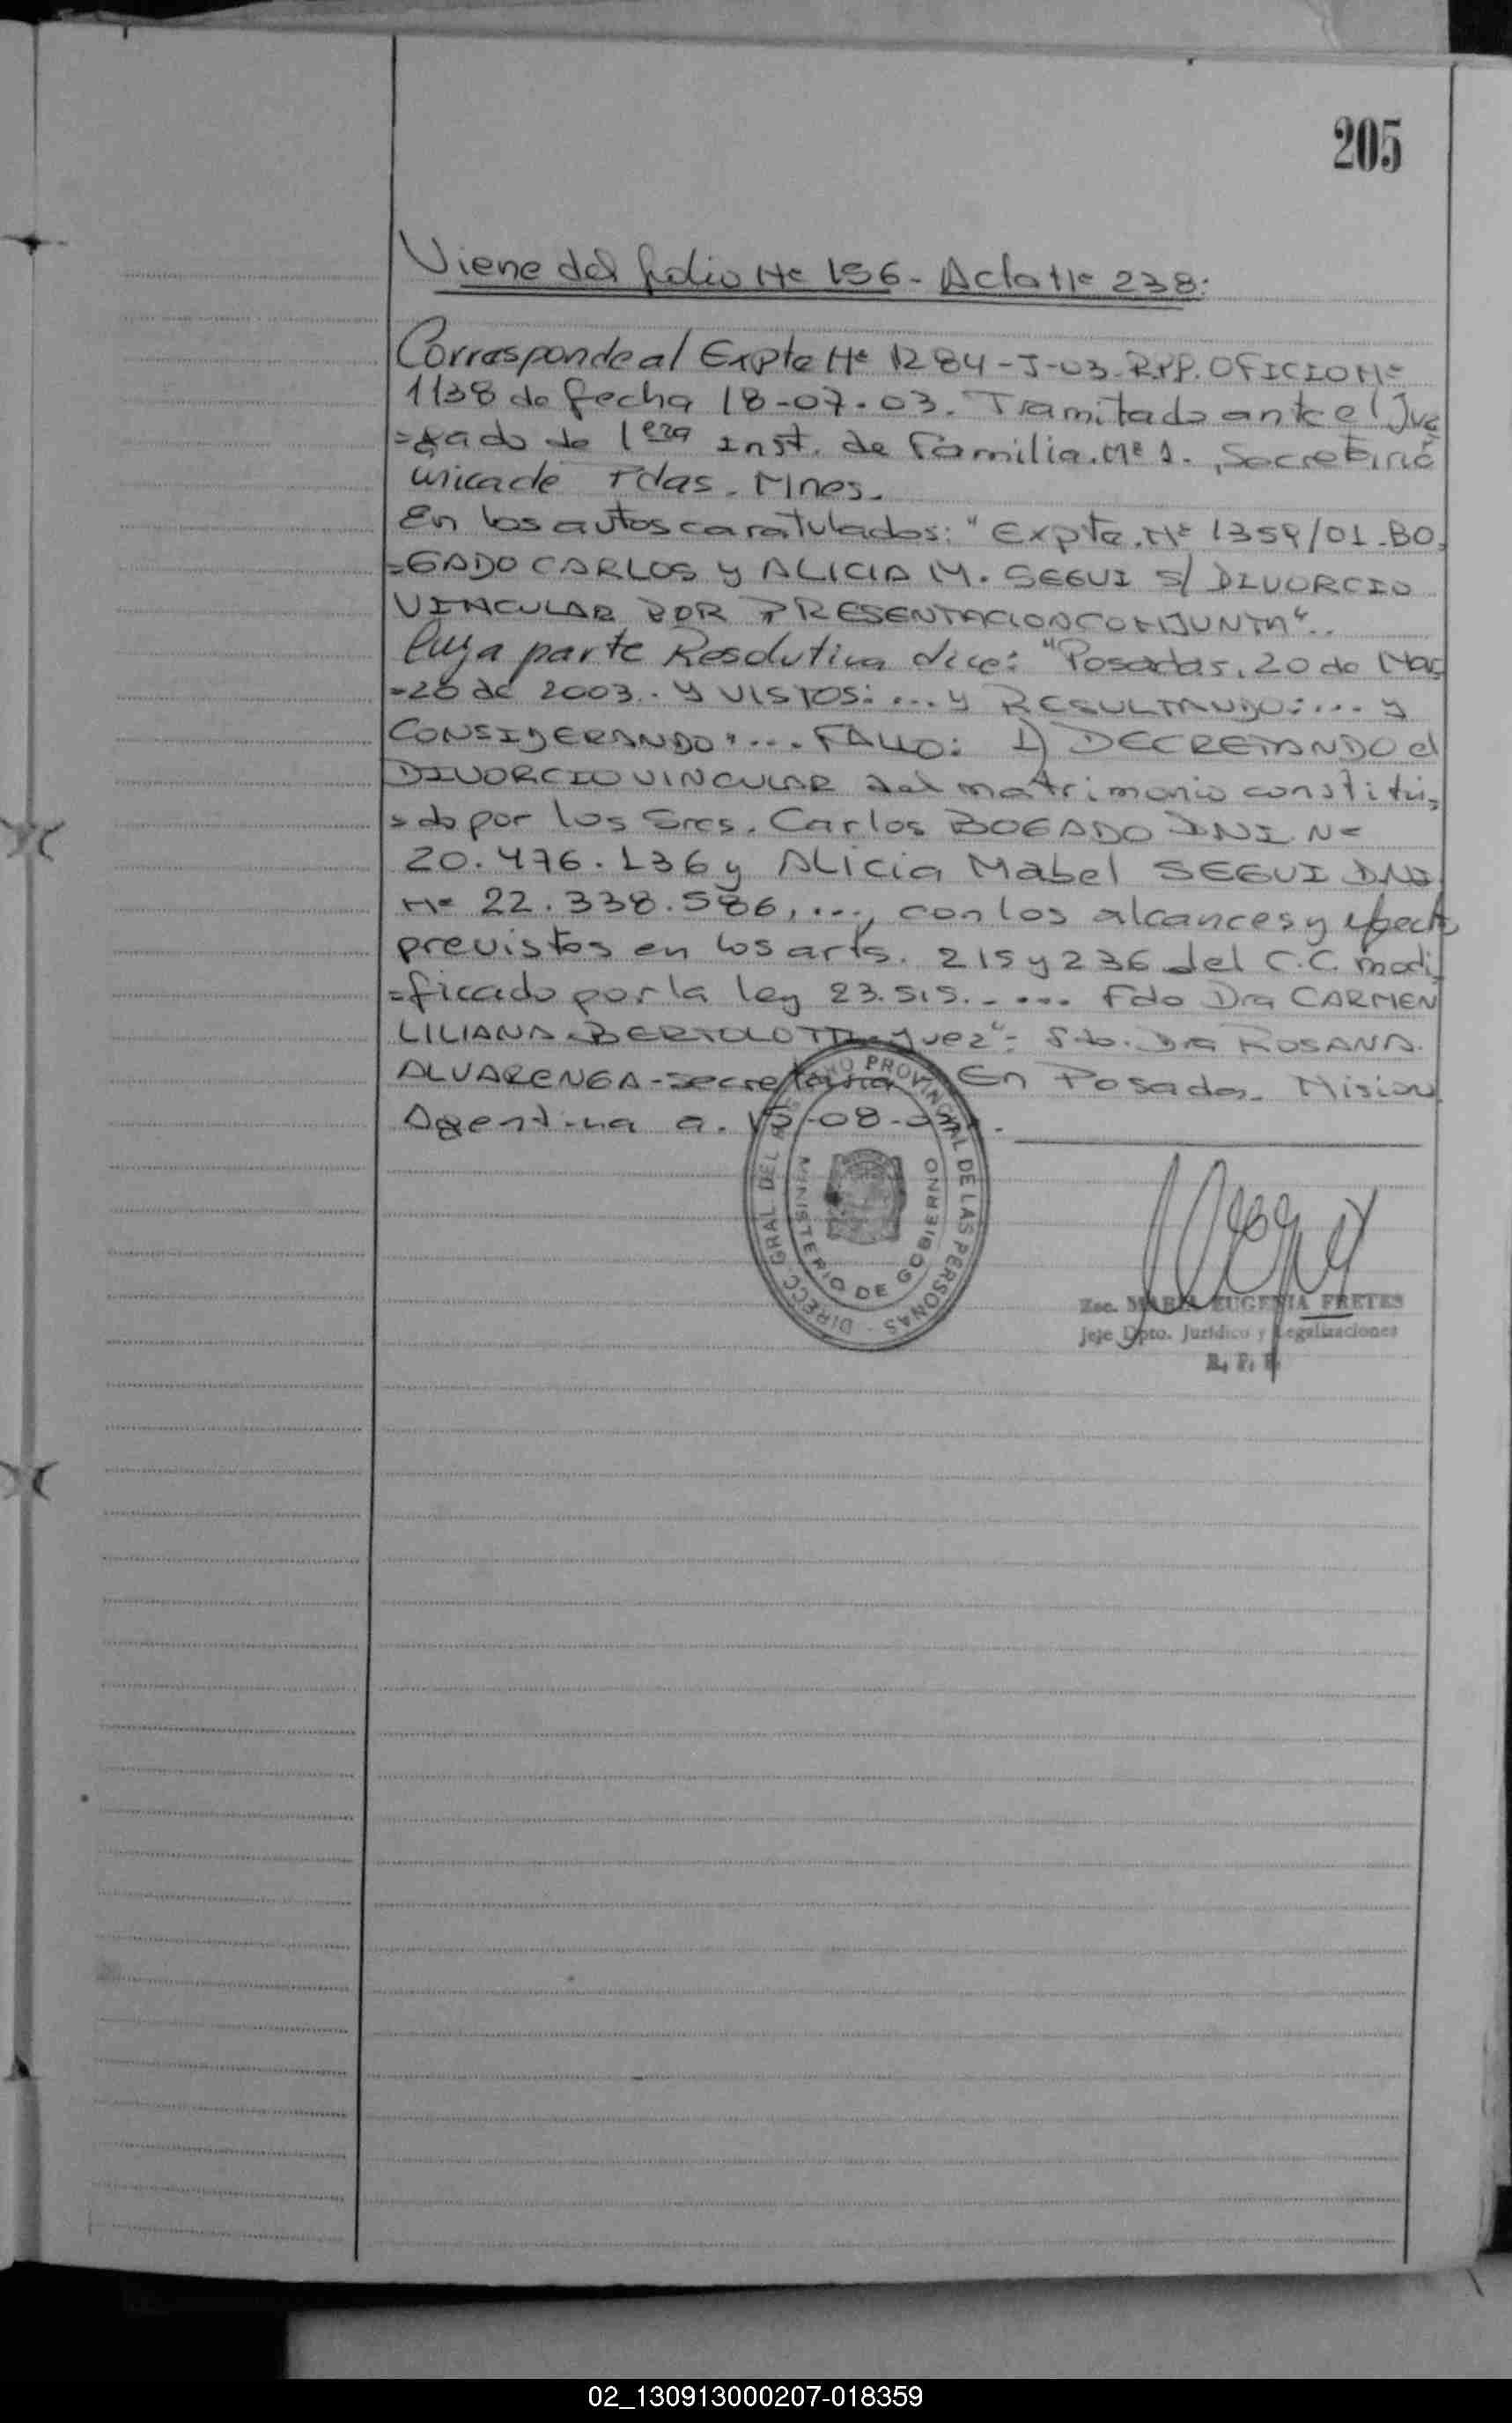 205
Viene del folio Nº 156 - Acta Nº 238:
Corresponde al Expte Nº 1284-J-03-RPP. OFICIO Nº
1138 de fecha 18-07-03. Tramitado ante el Juz
=gado de 1era Inst. de Familia. Nº 1., Secretaría
unica de Pdas. Mnes.
En los autos caratulados: "Expte. Nº 1354/01-BO,
=GADO CARLOS y ALICIA M. SEGUI S/ DIVORCIO
VINCULAR POR PRESENTACION CONJUNTA"..
Cuya parte Resolutiva dice: "Posadas, 20 de Mar
=zo de 2003.. Y VISTOS: ... y RESULTANDO: ... y
CONSIDERANDO: ... FALLO: 1) DECRETANDO el
DIVORCIO VINCULAR del matrimonio constitui,
=do por los Sres. Carlos BOGADO DNI Nº
20.476.136 y ALicia Mabel SEGUI DNI
Nº 22.338.586, ..., con los alcances y efect
previstos en los arts. 215 y 236 del C.C. modi,
=ficado por la ley 23.515. - ... Fdo Dra CARMEN
LILIANA BERTOLOTTI - Juez": Fdo. Dra ROSANA
ALVARENGA - Secretaria En Posadas - Mision
Argentina a. 15-08-03.
DIRECC. GRAL. DEL REGISTRO PROVINCIAL DE LAS PERSONAS
MINISTERIO DE GOBIERNO
Esc. MARIA EUGENIA FRETES
Jefe Dpto. Jurídico y Legalizaciones
R. P. P.
02_130913000207-018359